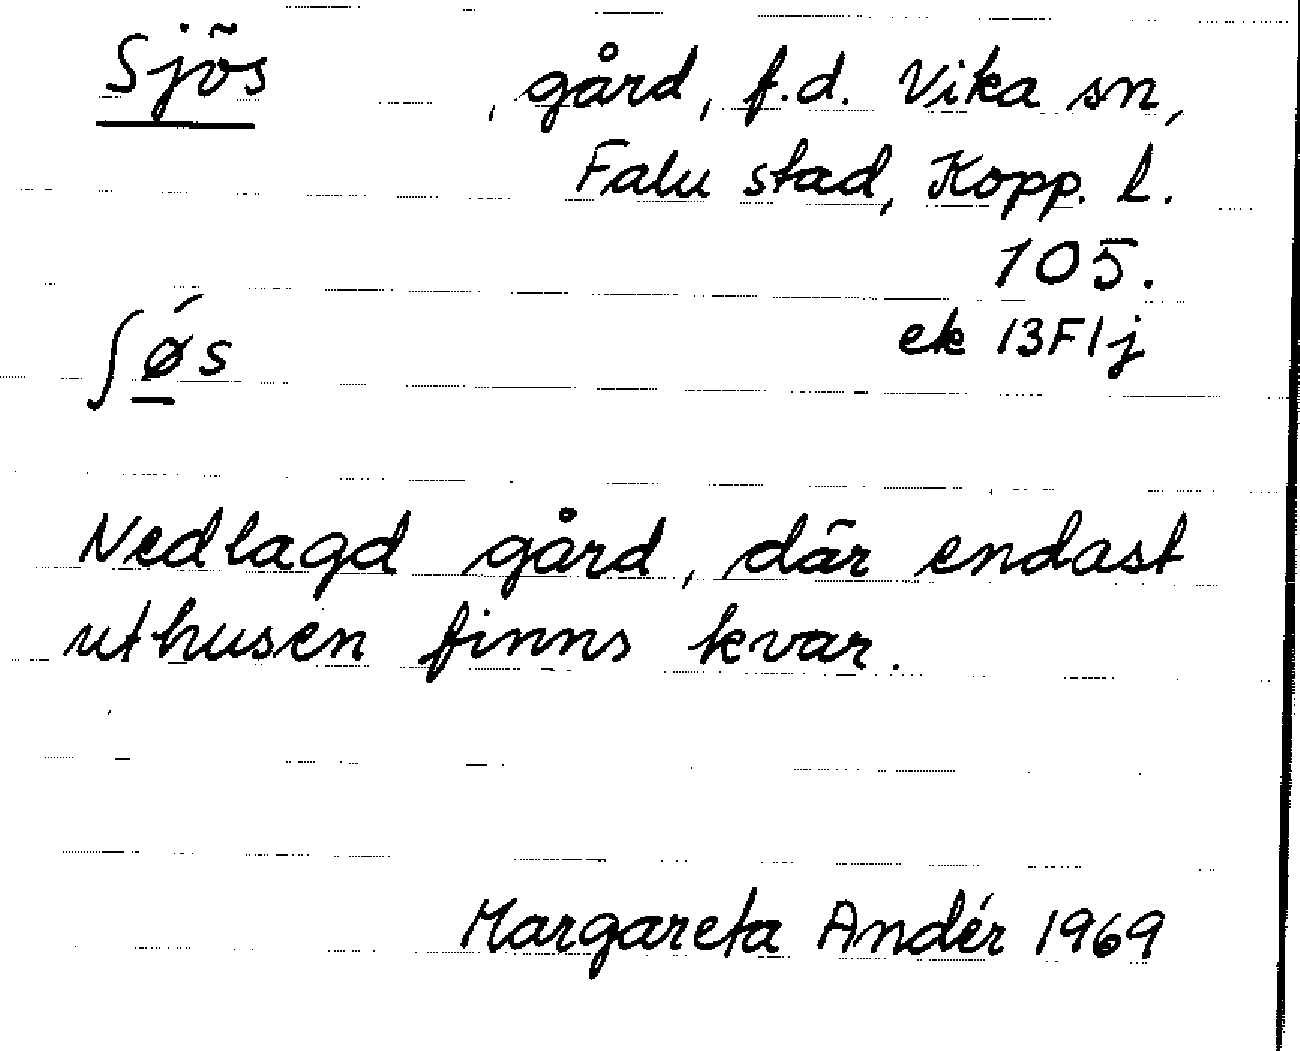 Sjös, gård, f.d. Vika sn,
Falu stad, Kopp. l.
105.
ek 13F1j
ʃǿs
Nedlagd gård, där endast
uthusen finns kvar.
Margareta Andér 1969